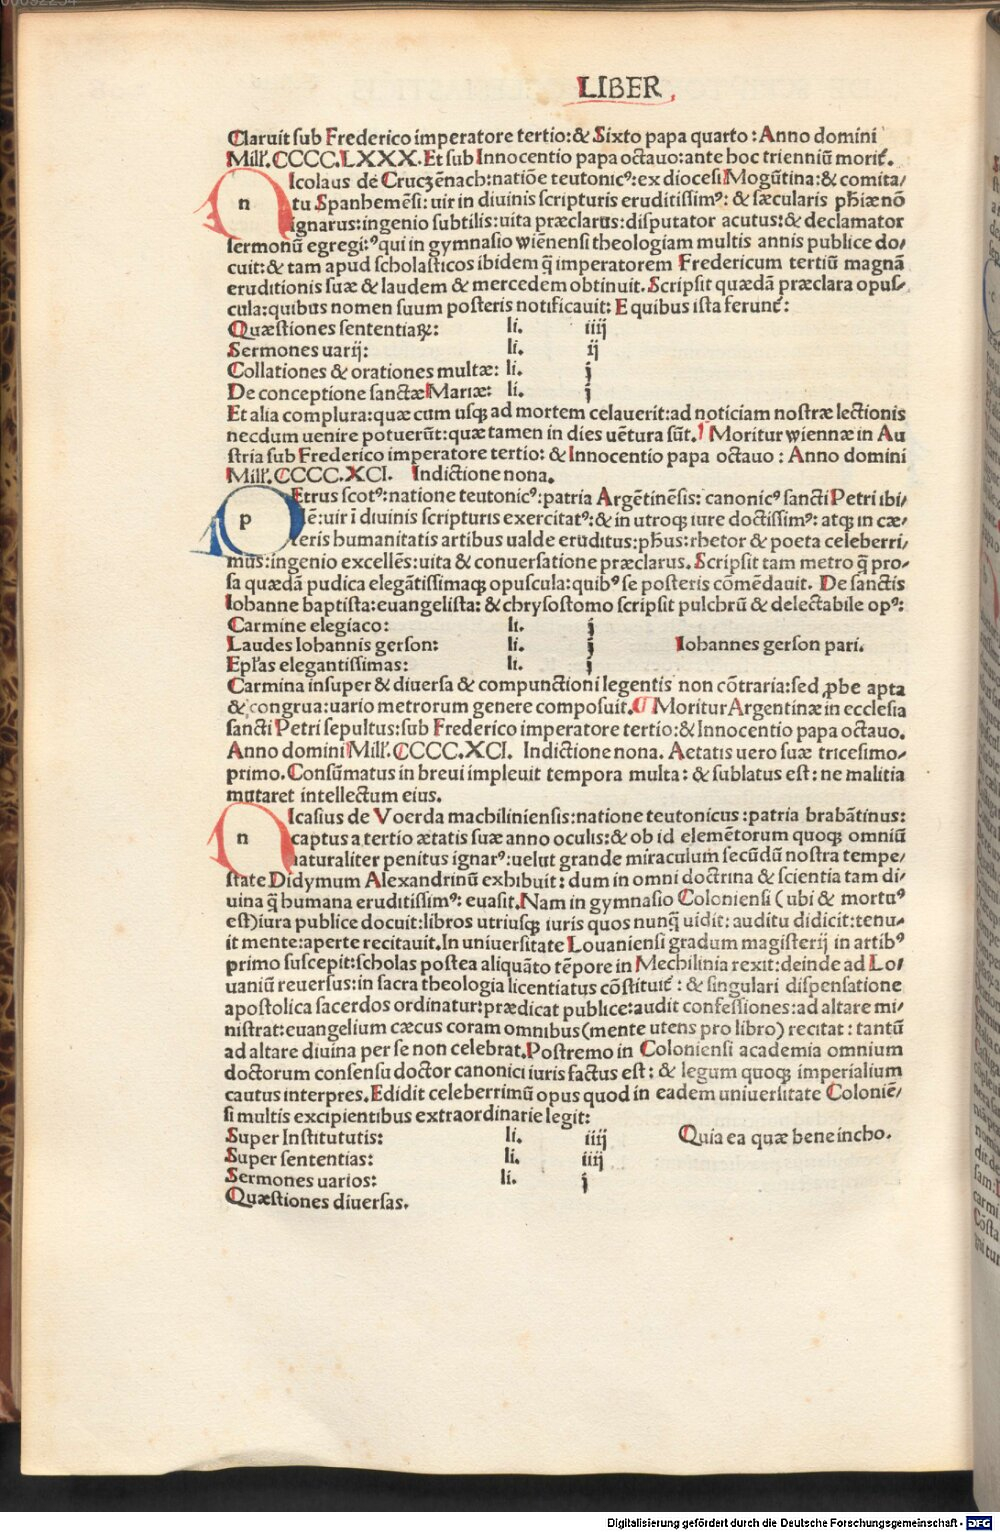 LIBER
Claruit sub Frederico imperatore tertio:& Sixto papa quarto : Anno domini
Mill'. CCCC.LXXX. Et sub Innocentio papa octauo:ante hoc trienniū morit̄.
nIcolaus de Cruczēnach:natiōe teutonicꝰ:ex diocesi Mogūtina:& comita/
tu Spanhemēsi: uir in diuinis scripturis eruditissimꝰ: & sæcularis phīæ nō
ignarus:ingenio subtilis:uita præclarus:disputator acutus:& declamator
sermonū egregiꝰ: qui in gymnasio wiēnensi theologiam multis annis publice do/
cuit:& tam apud scholasticos ibidem q̄ imperatorem Fredericum tertiū magnā
eruditionis suæ & laudem & mercedem obtinuit. Scripsit quædā præclara opus/
cula:quibus nomen suum posteris notificauit: E quibus ista ferunt̄:
Quæstiones sententiaꝝ: li. iiij
Sermones uarij: li. ij
Collationes & orationes multæ: li. j
De conceptione sanctæ Mariæ: li. j
Et alia complura:quæ cum usq; ad mortem celauerit:ad noticiam nostræ lectionis
necdum uenire potuerūt:quæ tamen in dies uētura sūt. Moritur wiennæ in Au
stria sub Frederico imperatore tertio: & Innocentio papa octauo : Anno domini
Mill'. CCCC.XCI. Indictione nona.
pEtrus scotꝰ:natione teutonicꝰ:patria Argētinēsis: canonicꝰ sancti Petri ibi/
dē:uir ī diuinis scripturis exercitatꝰ:& in utroq; iure doctissimꝰ: atq; in cæ/
teris humanitatis artibus ualde eruditus:phūs:rhetor & poeta celeberri/
mus:ingenio excellēs:uita & conuersatione præclarus. Scripsit tam metro q̄ pro/
sa quædā pudica elegātissimaq; opuscula:quibꝰ se posteris cōmēdauit. De sanctis
Iohanne baptista:euangelista: & chrysostomo scripsit pulchrū & delectabile opꝰ:
Carmine elegiaco: li. j
Laudes Iohannis gerson: li. j Iohannes gerson pari.
Epl'as elegantissimas: li. j
Carmina insuper & diuersa & compunctioni legentis non cōtraria:sed ꝓbe apta
& congrua:uario metrorum genere composuit. ¶ Moritur Argentinæ in ecclesia
sancti Petri sepultus:sub Frederico imperatore tertio:& Innocentio papa octauo.
Anno domini Mill'. CCCC.XCI. Indictione nona. Aetatis uero suæ tricesimo/
primo. Consūmatus in breui impleuit tempora multa: & sublatus est: ne malitia
mutaret intellectum eius.
nIcasius de Voerda machiliniensis:natione teutonicus:patria brabātinus:
captus a tertio ætatis suæ anno oculis:& ob id elemētorum quoq; omniū
naturaliter penitus ignarꝰ:uelut grande miraculum secūdū nostra tempe/
state Didymum Alexandrinū exhibuit: dum in omni doctrina & scientia tam di/
uina q̄ humana eruditissimꝰ: euasit. Nam in gymnasio Coloniensi (ubi & mortuꝰ
est) iura publice docuit:libros utriusq; iuris quos nunq̄ uidit: auditu didicit:tenu/
it mente:aperte recitauit. In uniuersitate Louaniensi gradum magisterij in artibꝰ
primo suscepit:scholas postea aliquāto tēpore in Mechilinia rexit:deinde ad Lo/
uaniū reuersus:in sacra theologia licentiatus cōstituit̄ : & singulari dispensatione
apostolica sacerdos ordinatur:prædicat publice:audit confessiones:ad altare mi/
nistrat:euangelium cæcus coram omnibus (mente utens pro libro) recitat : tantū
ad altare diuina per se non celebrat. Postremo in Coloniensi academia omnium
doctorum consensu doctor canonici iuris factus est: & legum quoq; imperialium
cautus interpres. Edidit celeberrimū opus quod in eadem uniuersitate Coloniē/
si multis excipientibus extraordinarie legit:
Super Institututis: li. iiij Quia ea quæ bene incho.
Super sententias: li. iiij
Sermones uarios: li. j
Quæstiones diuersas.
Digitalisierung gefördert durch die Deutsche Forschungsgemeinschaft - DFG